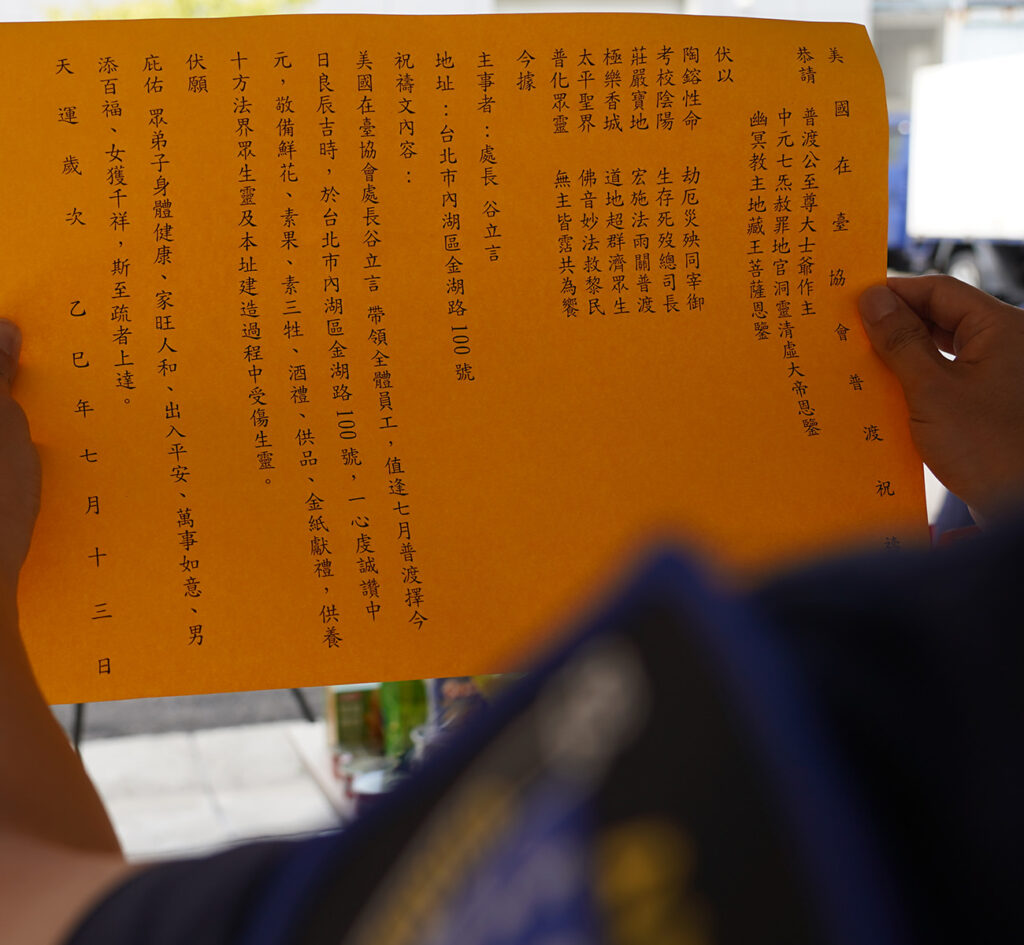 美國在臺協會普渡祝
恭請 普渡公至尊大士爺作主
中元七炁赦罪地官洞靈清虛大帝恩鑒
幽冥教主地藏王菩薩恩鑒
伏以
陶鎔性命 劫厄災殃同宰御
考校陰陽 生存死歿總司長
莊嚴寶地 宏施法雨關普渡
極樂香城 道地超群濟眾生
太平聖界 佛音妙法救黎民
普化眾靈 無主皆霑共為饗
今據
主事者：處長 谷立言
地址：台北市內湖區金湖路100號
祝禱文內容：
美國在臺協會處長谷立言 帶領全體員工，值逢七月普渡擇今
日良辰吉時，於台北市內湖區金湖路100號，一心虔誠讚中
元，敬備鮮花、素果、素三牲、酒禮、供品、金紙獻禮，供養
十方法界眾生靈及本址建造過程中受傷生靈。
伏願
庇佑 眾弟子身體健康、家旺人和、出入平安、萬事如意、男
添百福、女獲千祥，斯至疏者上達。
天運歲次 乙巳年七月十三日